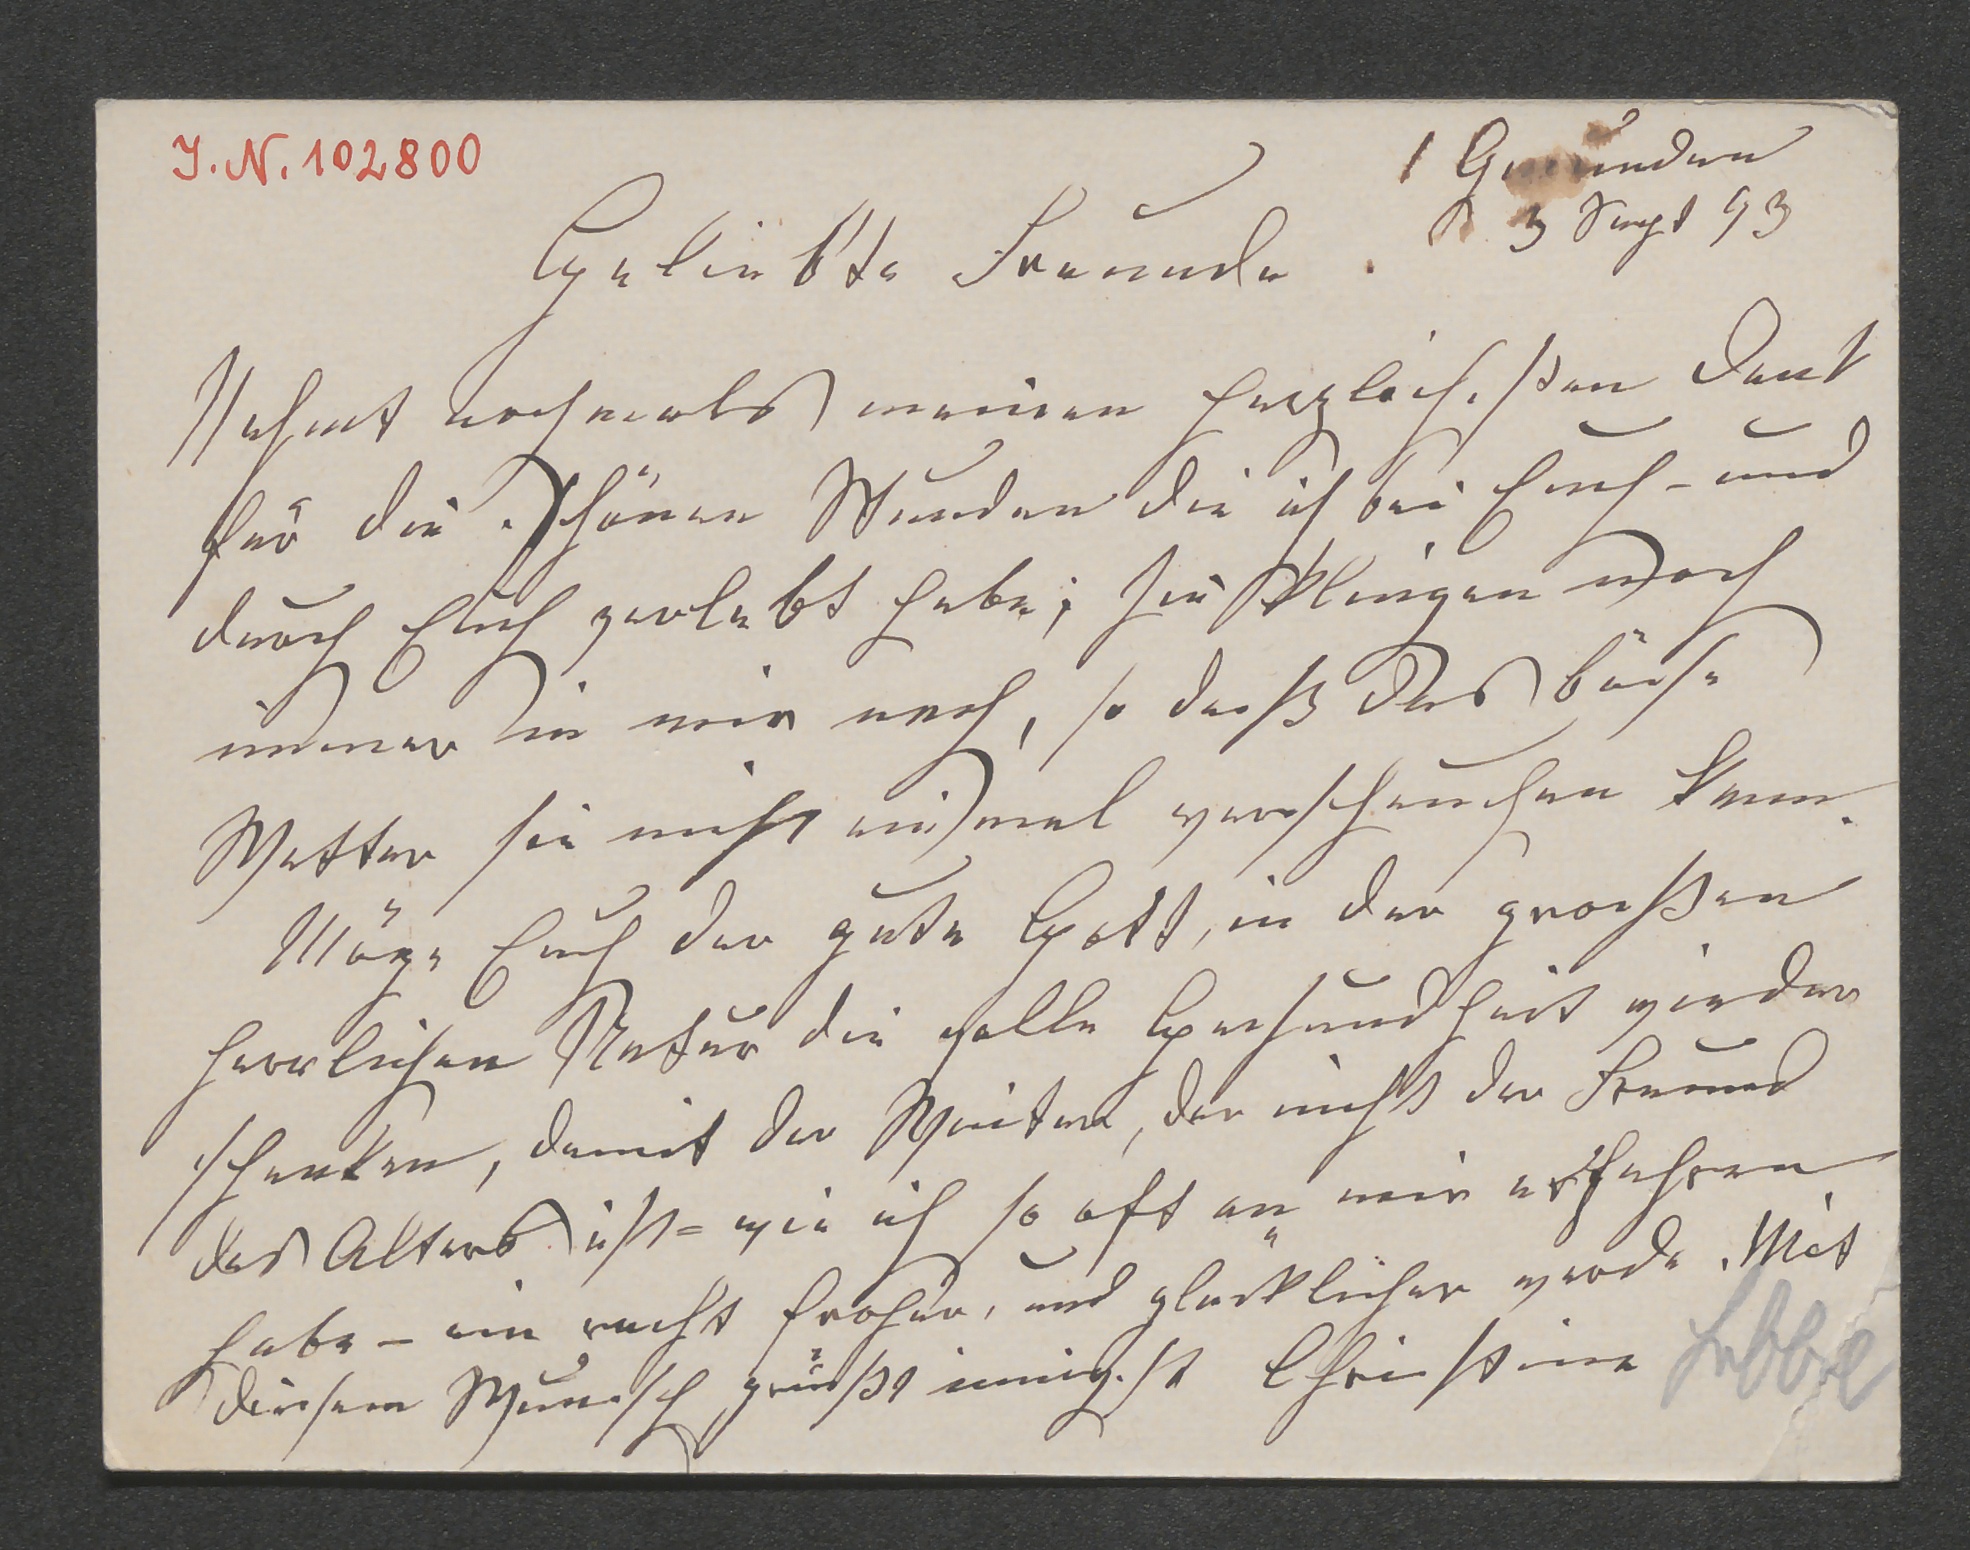 I. N. 102800
Gmunden
3 Sept 93
Geliebte Freunde
Nehmt nochmals meinen herzlichsten Dank
für die schönen Stunden die ich bei Euch - und
durch Euch verlebt habe; sie klingen noch
immer in mir nach, so daß das böse
Wetter sie nicht einmal verscheuchen kann.
Möge Euch der gute Gott, in der großen
herrlichen Natur die volle Gesundheit wieder
schenken, damit der Winter, der nicht der Freund
des Alters ist - wie ich so oft an mir erfahren
habe - ein recht froher, und glücklicher werde. Mit
diesem Wunsch grüßt innigst Christine
Hebbel